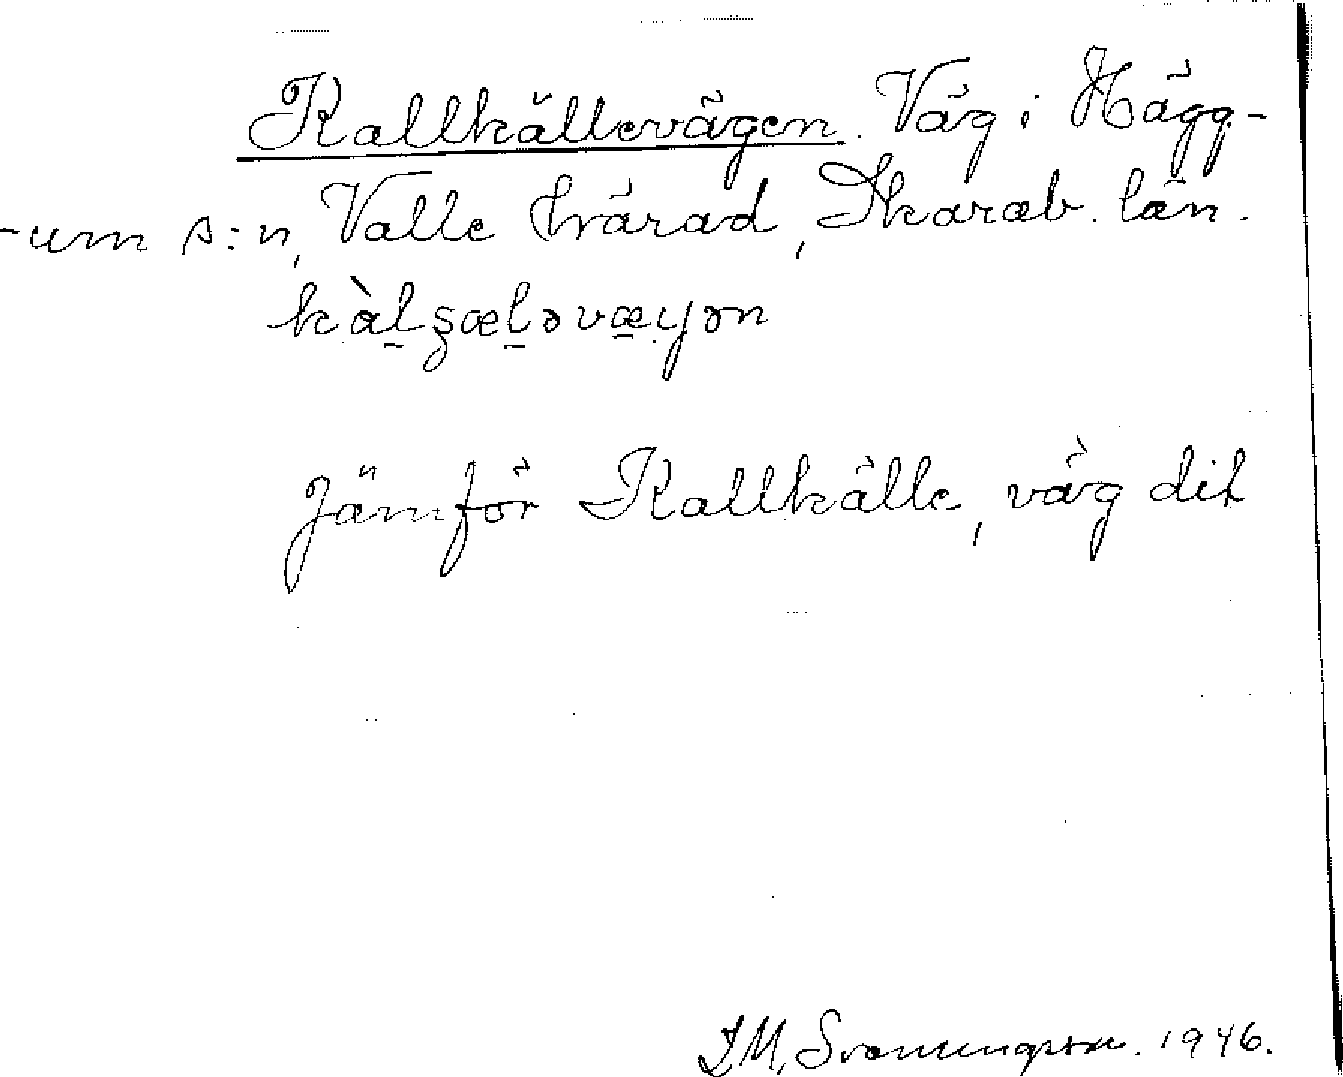 Kallkällevägen. Väg i Hägg-
-um s:n, Valle härad, Skarab. län.
kàl̠ʂæl̠əvæ̠ɣən
Jämför Kallkälle, väg dit
1946.